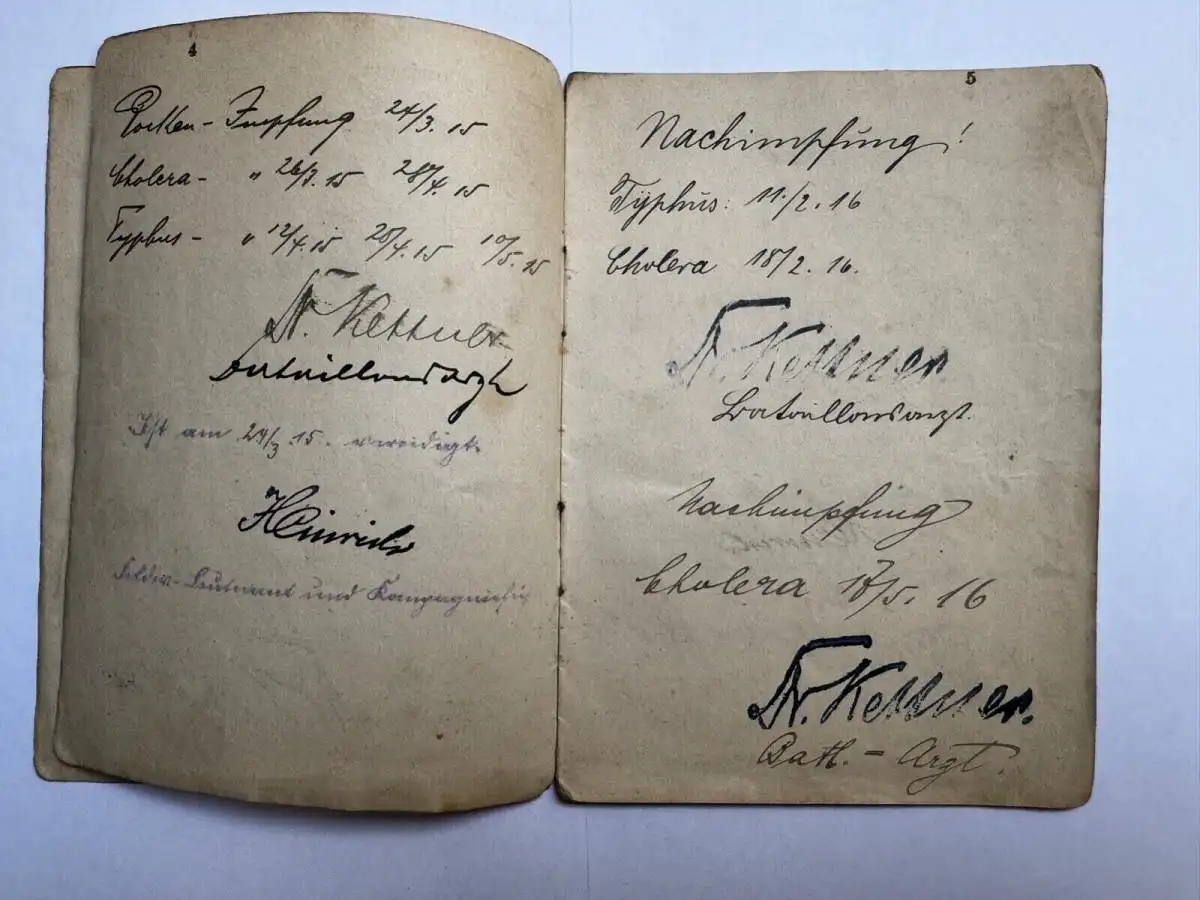 4
Pocken - Impfung 24/3. 15
Cholera - " 26/3. 15 28/4. 15
Typhus - " 12/4. 15 20/4. 15 10/5. 15
Dr. Kettner
Bataillonsarzt
Ist am 24/3. 15. vereidigt.
Heinrich
Feldw.-Leutnant und Kompagnie
5
Nachimpfung!
Typhus: 11./2. 16
Cholera 18/2. 16.
Dr. Kettner.
Bataillonsarzt.
Nachimpfung
Cholera 17/5. 16
Dr. Kettner.
Batl. - Arzt.